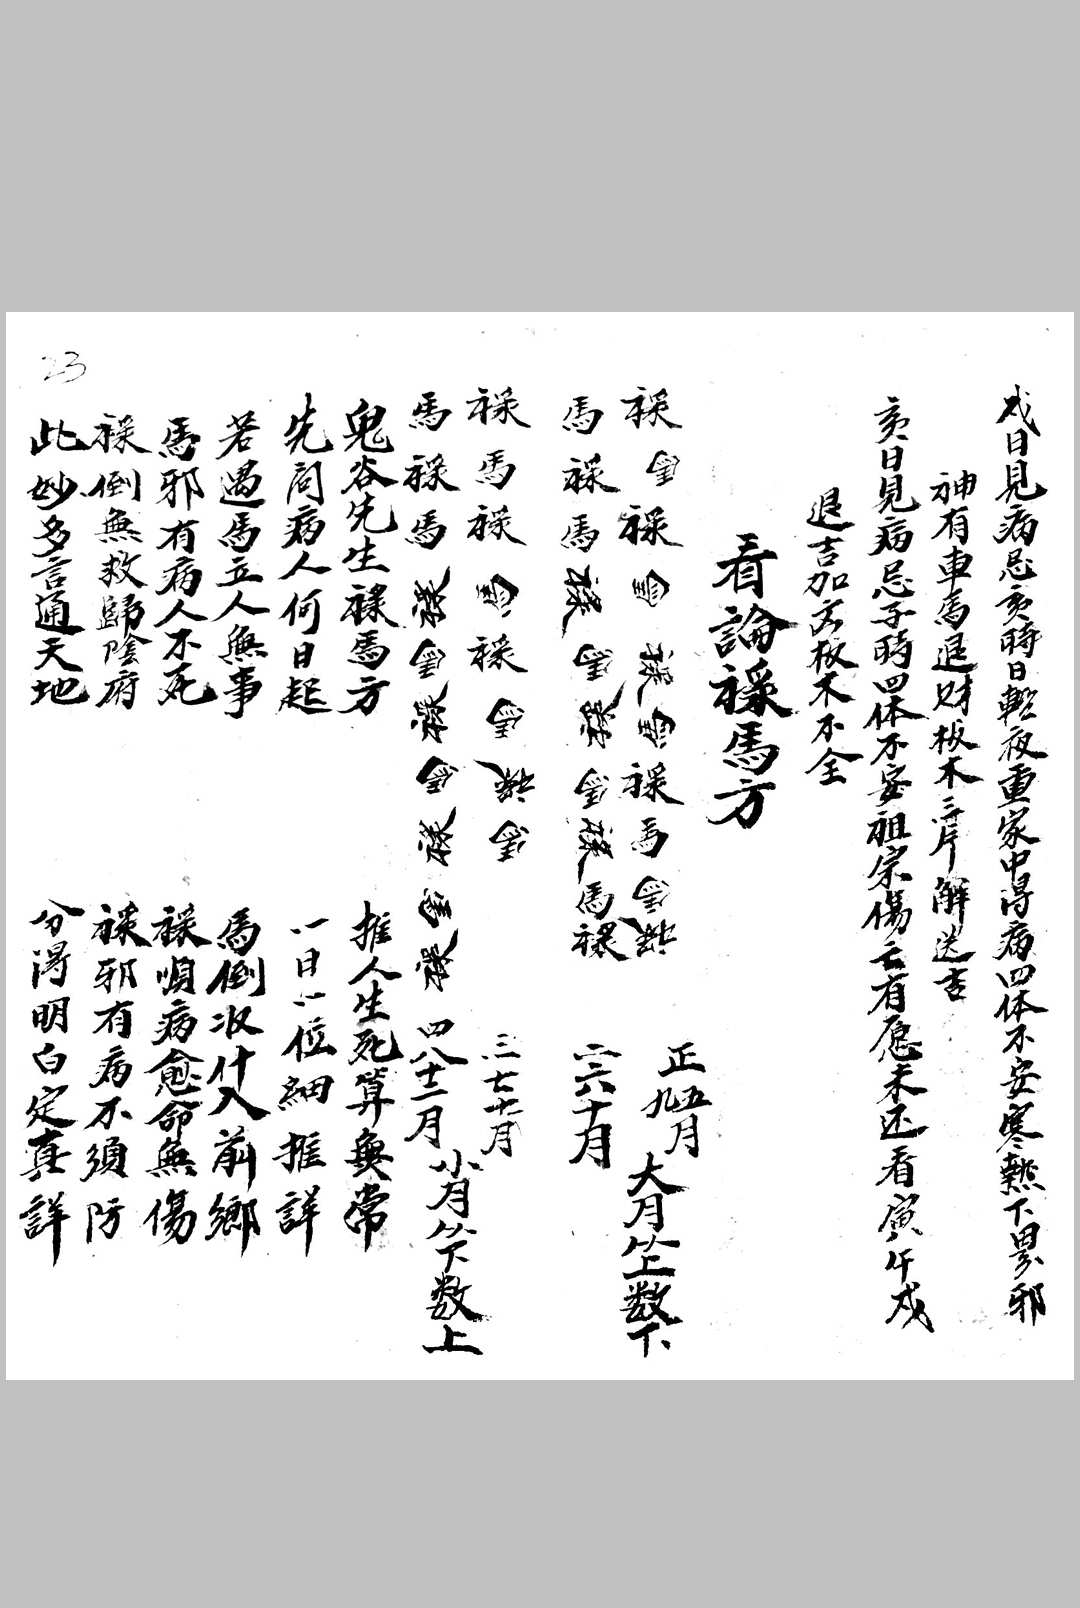 戌日見病忌亥時日輕夜重家中得病四体不安寒熱下界邪
神有車馬退財板木三片解送吉
亥日見病忌子時四体不安祖宗傷亡有愿未还看寅午戌
退吉加病板木不全
看論祿馬方
祿馬祿馬祿馬祿馬馬祿 正五九月 大月竺数下
馬祿馬祿馬祿馬祿馬祿 二六十月
祿馬祿馬祿馬祿馬 三七十一月
馬祿馬祿馬祿馬祿馬祿 四八十二月 小月竺数上
鬼谷先生祿馬方 推人生死算無常
先问病人何日起 一日一位細推詳
若遇馬立人無事 馬倒收什入前鄉
馬邪有病人不死 祿順病愈命無傷
祿倒無救歸陰府 祿邪有病不須防
此妙多言通天地 分得明白定真詳
23